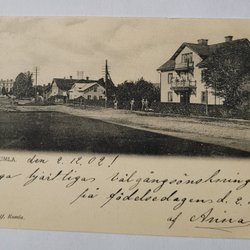 UMLA. den 2.12.02!
hjärtligas välgångsönskning
på födelsedagen d. 2
af Anna
f, Kumla.